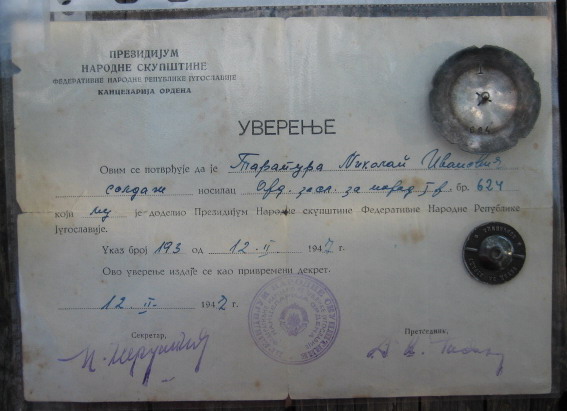 ПРЕЗИДИЈУМ
НАРОДНЕ СКУПШТИНЕ
ФЕДЕРАТИВНЕ НАРОДНЕ РЕПУБЛИКЕ ЈУГОСЛАВИЈЕ
КАНЦЕЛАРИЈА ОРДЕНА
УВЕРЕЊЕ
Овим се потврђује да је Таратура Николай Иванович
солдат носилац Орд. засл. за народ I р бр. 624
који му је доделио Президијум Народне скупштине Федеративне Народне Републике
Југославије.
Указ број 193 од 12. II 1947 г.
Ово уверење издаје се као привремени декрет.
12 II 1947 г.
Секретар,
Претседник,